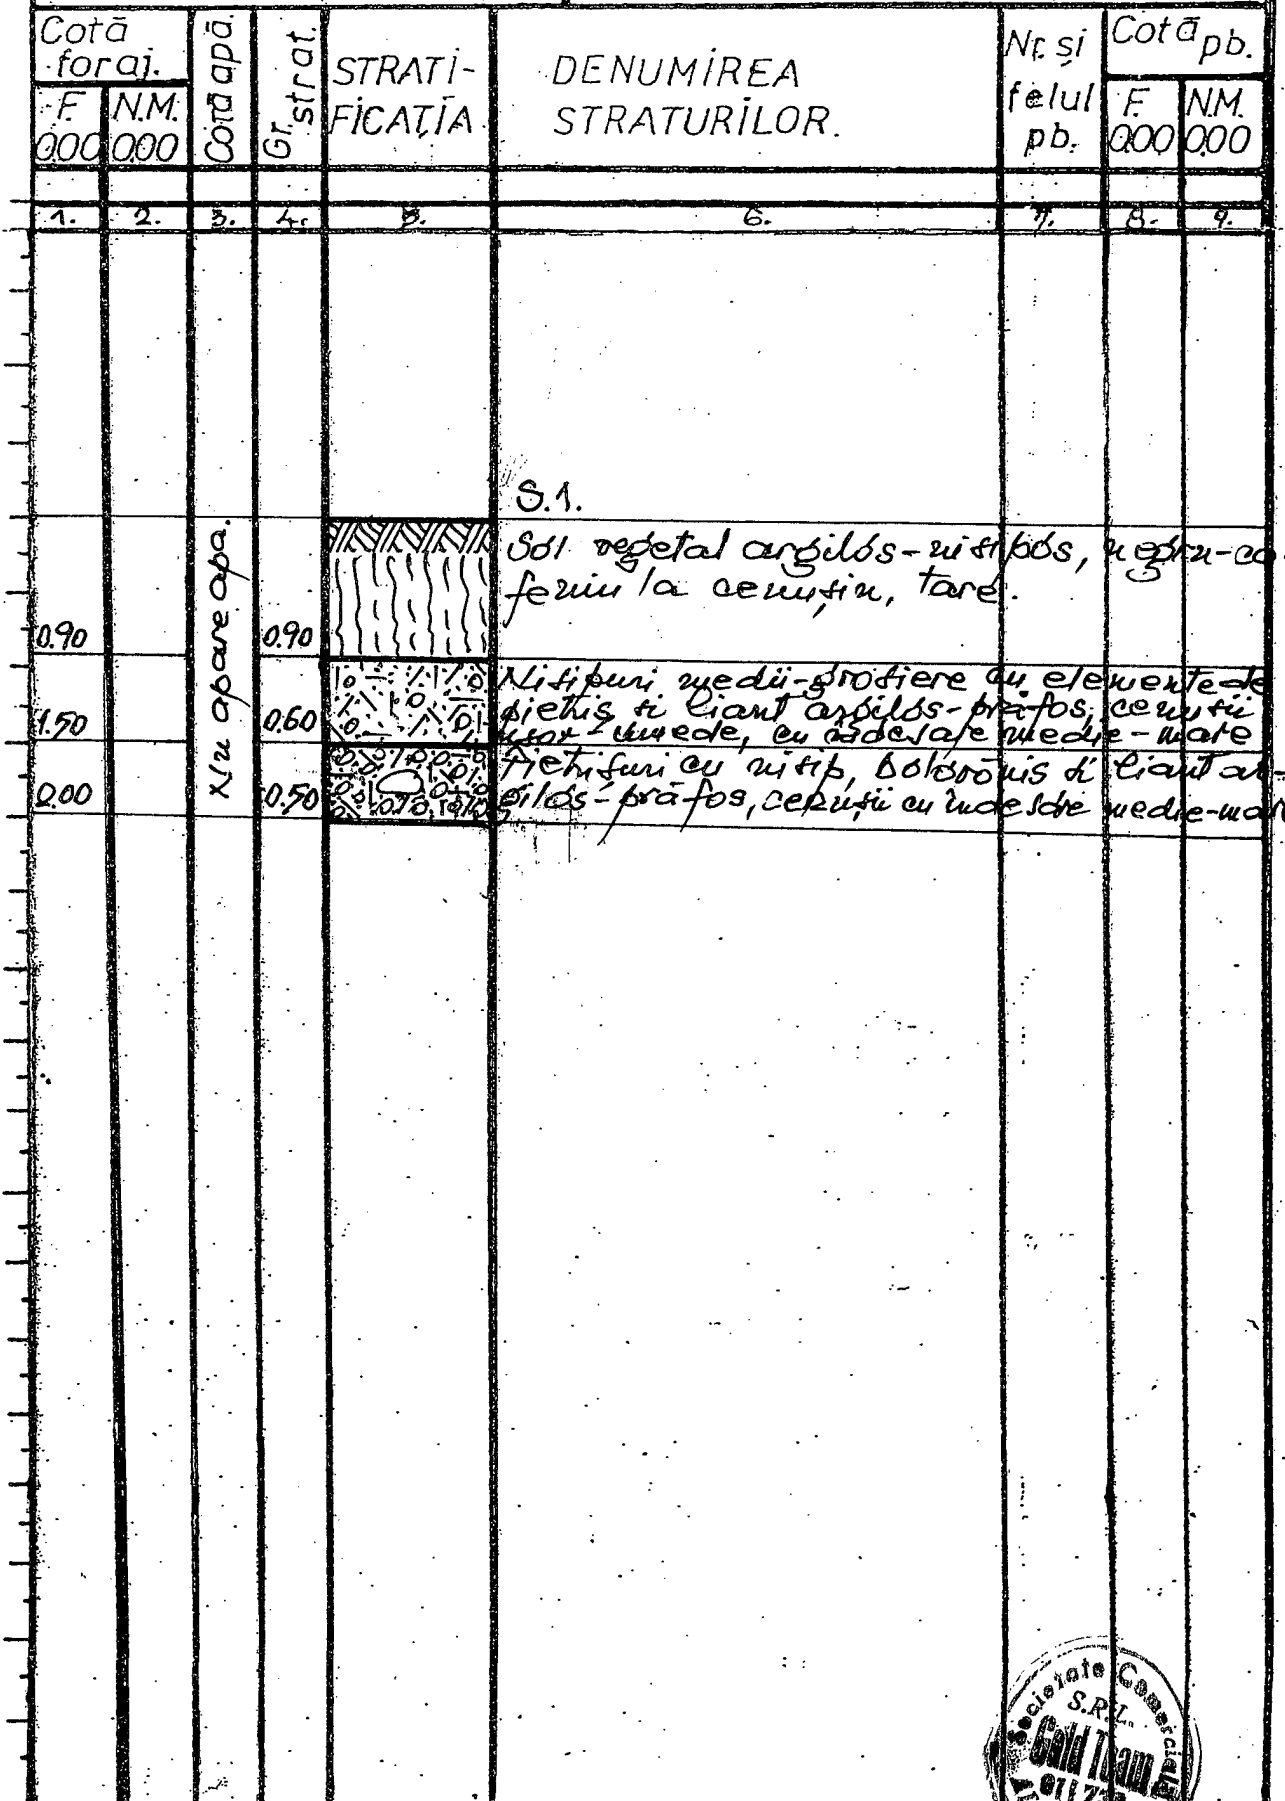 Cotă
foraj.
F. N.M.
0.00 0.00
Cotă apă.
Gr. strat.
STRATI-
FICAȚIA
DENUMIREA
STRATURILOR.
Nr. și
felul
pb.
Cotă pb.
F. N.M.
0.00 0.00
1. 2. 3. 4. 5. 6. 7. 8. 9.
S.1.
Nu apare apa.
0.90 0.90
Sol vegetal argilos-nisipos, negru-ca-
feniu la cenușiu, tare.
1.50 0.60
Nisipuri medii-grosiere cu elemente de
pietriș și liant argilos-prăfos, cenușii
ușor-umede, cu îndesare medie-mare
2.00 0.50
Pietrișuri cu nisip, bolovăniș și liant ar-
gilos-prăfos, cenușii cu îndesare medie-mare
Societate Comercială
S.R.L.
Gold Team